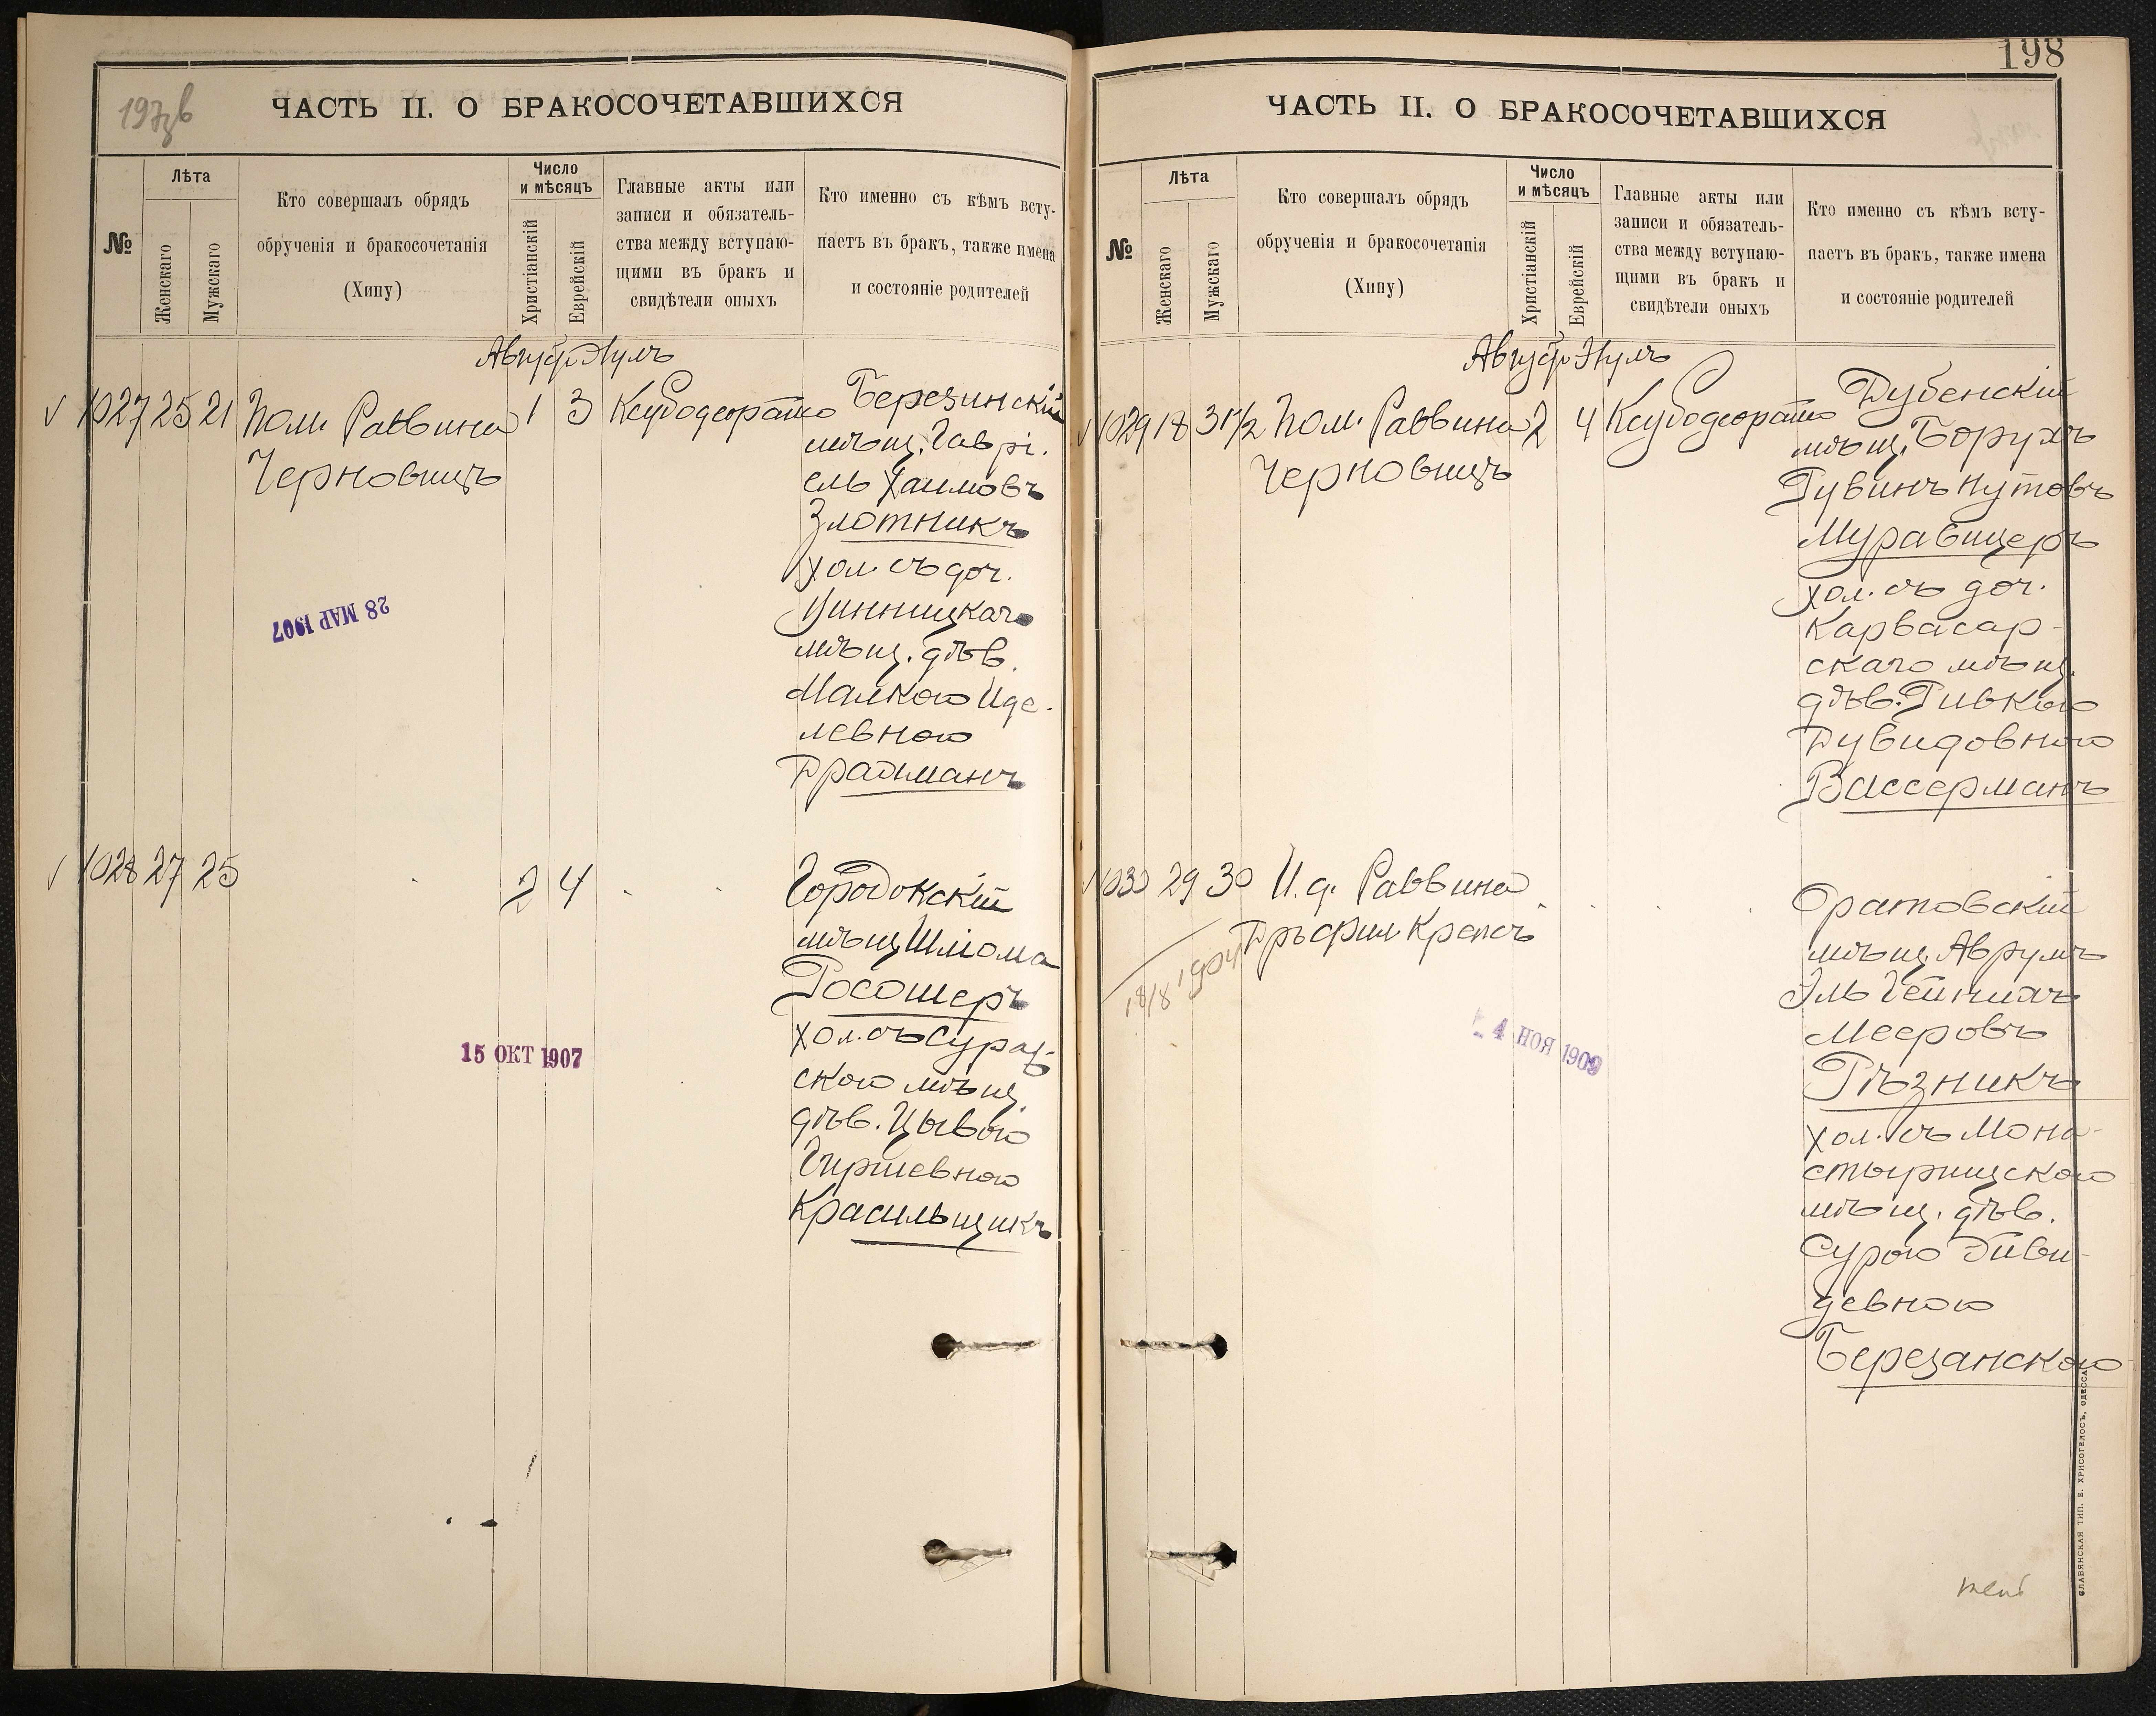 197 зв
ЧАСТЬ II. О БРАКОСОЧЕТАВШИХСЯ
№
Лѣта
Женскаго
Мужскаго
Кто совершалъ обрядъ
обрученія и бракосочетанія
(Хипу)
Число
и мѣсяцъ
Христіанскій
Еврейскій
Главные акты или
записи и обязатель-
ства между вступаю-
щими въ бракъ и
свидѣтели оныхъ
Кто именно съ кѣмъ всту-
паетъ въ бракъ, также имена
и состояніе родителей
1027 25 21 Пом. Раввина 1 3
Черновицъ
Березинскій
мѣщ. Гаврі-
ель Хаимовъ
Злотникъ
хол. съ доч.
Винницкаго
мѣщ. дѣв.
Малкою Иде-
левною
28 МАР 1907
1028 27 25 2 4
Городокскій
мѣщ Шлiома
Росошеръ
хол. съ Сураж-
скою мѣщ.
дѣв. Цывіею
Гиршевною
Красильщикъ
15 ОКТ 1907
198
ЧАСТЬ II. О БРАКОСОЧЕТАВШИХСЯ
№
Лѣта
Женскаго
Мужскаго
Кто совершалъ обрядъ
обрученія и бракосочетанія
(Хипу)
Число
и мѣсяцъ
Христіанскій
Еврейскій
Главные акты или
записи и обязатель-
ства между вступаю-
щими въ бракъ и
свидѣтели оныхъ
Кто именно съ кѣмъ всту-
паетъ въ бракъ, также имена
и состояніе родителей
1029 18 31½ Пом. Раввина 2 4
Черновицъ
Дубенскій
мѣщ. Борухъ
Рувинъ Нутовъ
Муравицеръ
хол. съ доч.
Карвасар-
скаго мѣщ.
дѣв. Ривкою
Дувидовною
Вассерманъ
1030 29 30 И. д. Раввина
Дръ фил. Крепсъ
18/8 1904
Оратовскій
мѣщ. Аврумъ
Эль Гейнихъ
Мееровъ
Рѣзникъ
хол. съ Мона-
стырищскою
мѣщ. дѣв.
Сурою Дави-
девною
Березанскою
4 НОЯ 1909
СЛАВЯНСКАЯ ТИП. Е. ХРИСОГЕЛОСЪ. ОДЕССА.